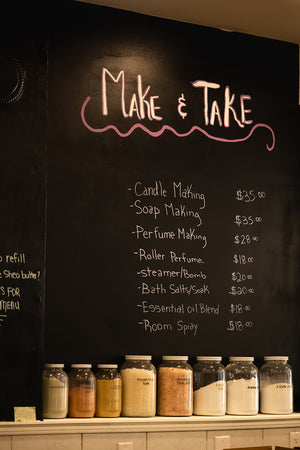 Make & Take
- Candle Making $35.00
- Soap Making $35.00
- Perfume Making $28.00
- Roller Perfume $18.00
- steamer/Bomb $20.00
- Bath Salts/Soak $20.00
- Essential oil Blend $18.00
- Room Spray $18.00
refill
Shea butter?
FOR
MENU